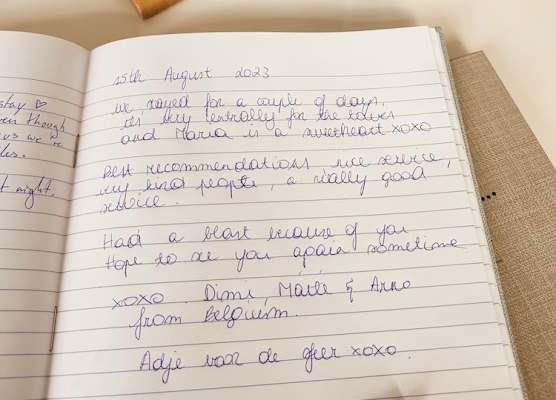 stay ♡
though
us we're
night.
15th August 2023
we stayed for a couple of days,
it's very centrally for the
and Maria is a sweetheart xoxo
Best recommendations nice service,
very kind people, a really good
service.
Had a blast because of you
Hope to see you again sometime
xoxo. Dimi, & Arno
from Belguim.
Adjé voor de xoxo.